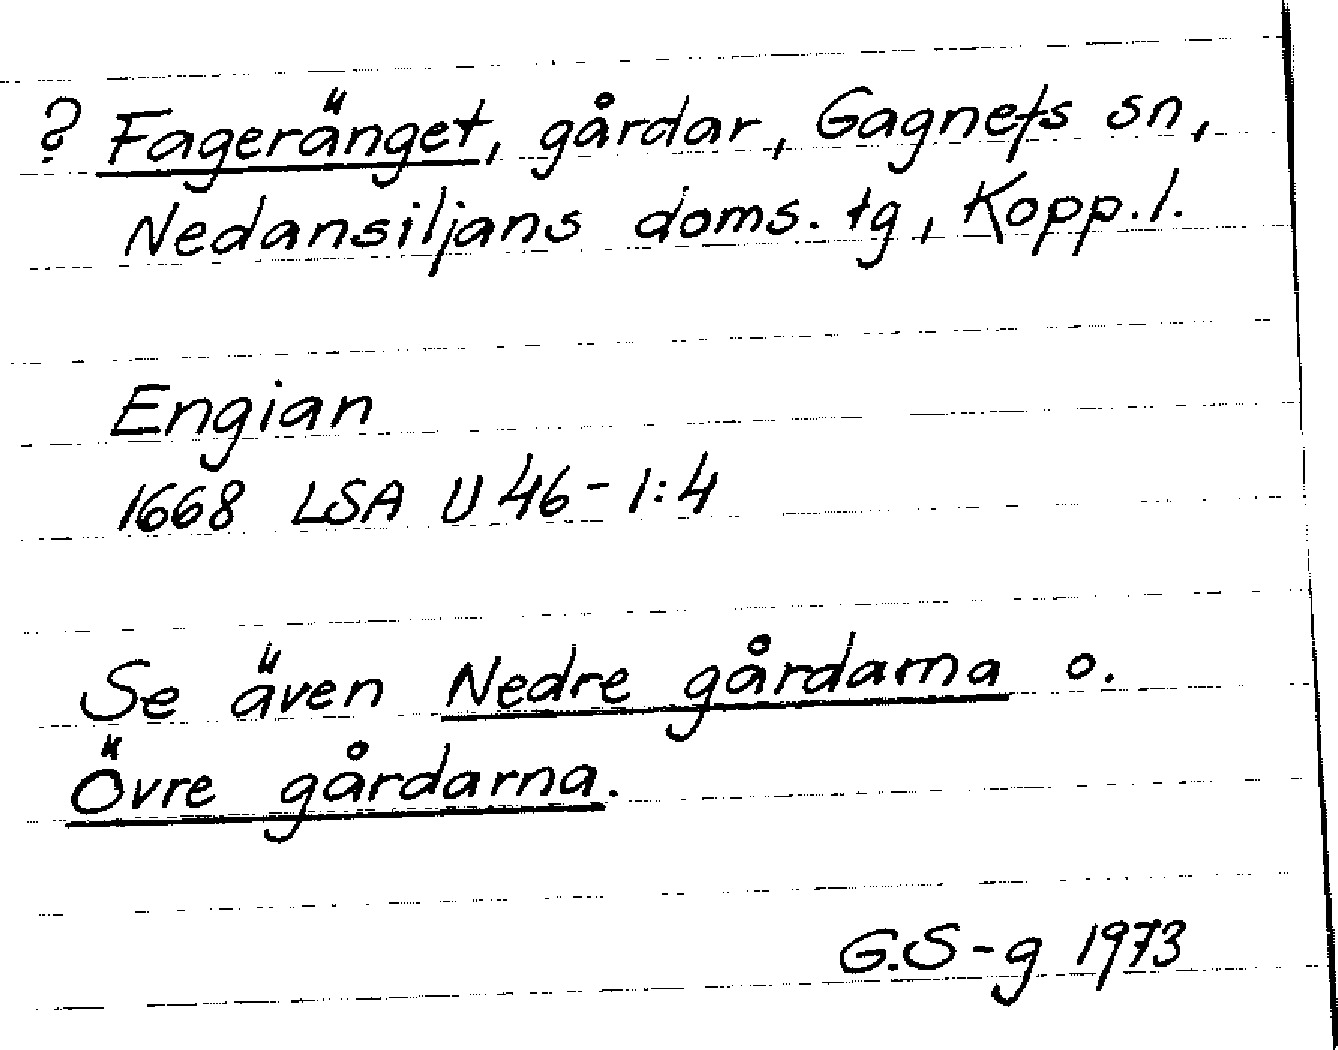 ? Fageränget, gårdar, Gagnefs sn,
Nedansiljans doms. tg, Kopp. l.
Engian
1668 LSA U 46-1:4
Se även Nedre gårdarna o.
Övre gårdarna.
G.S-g 1973